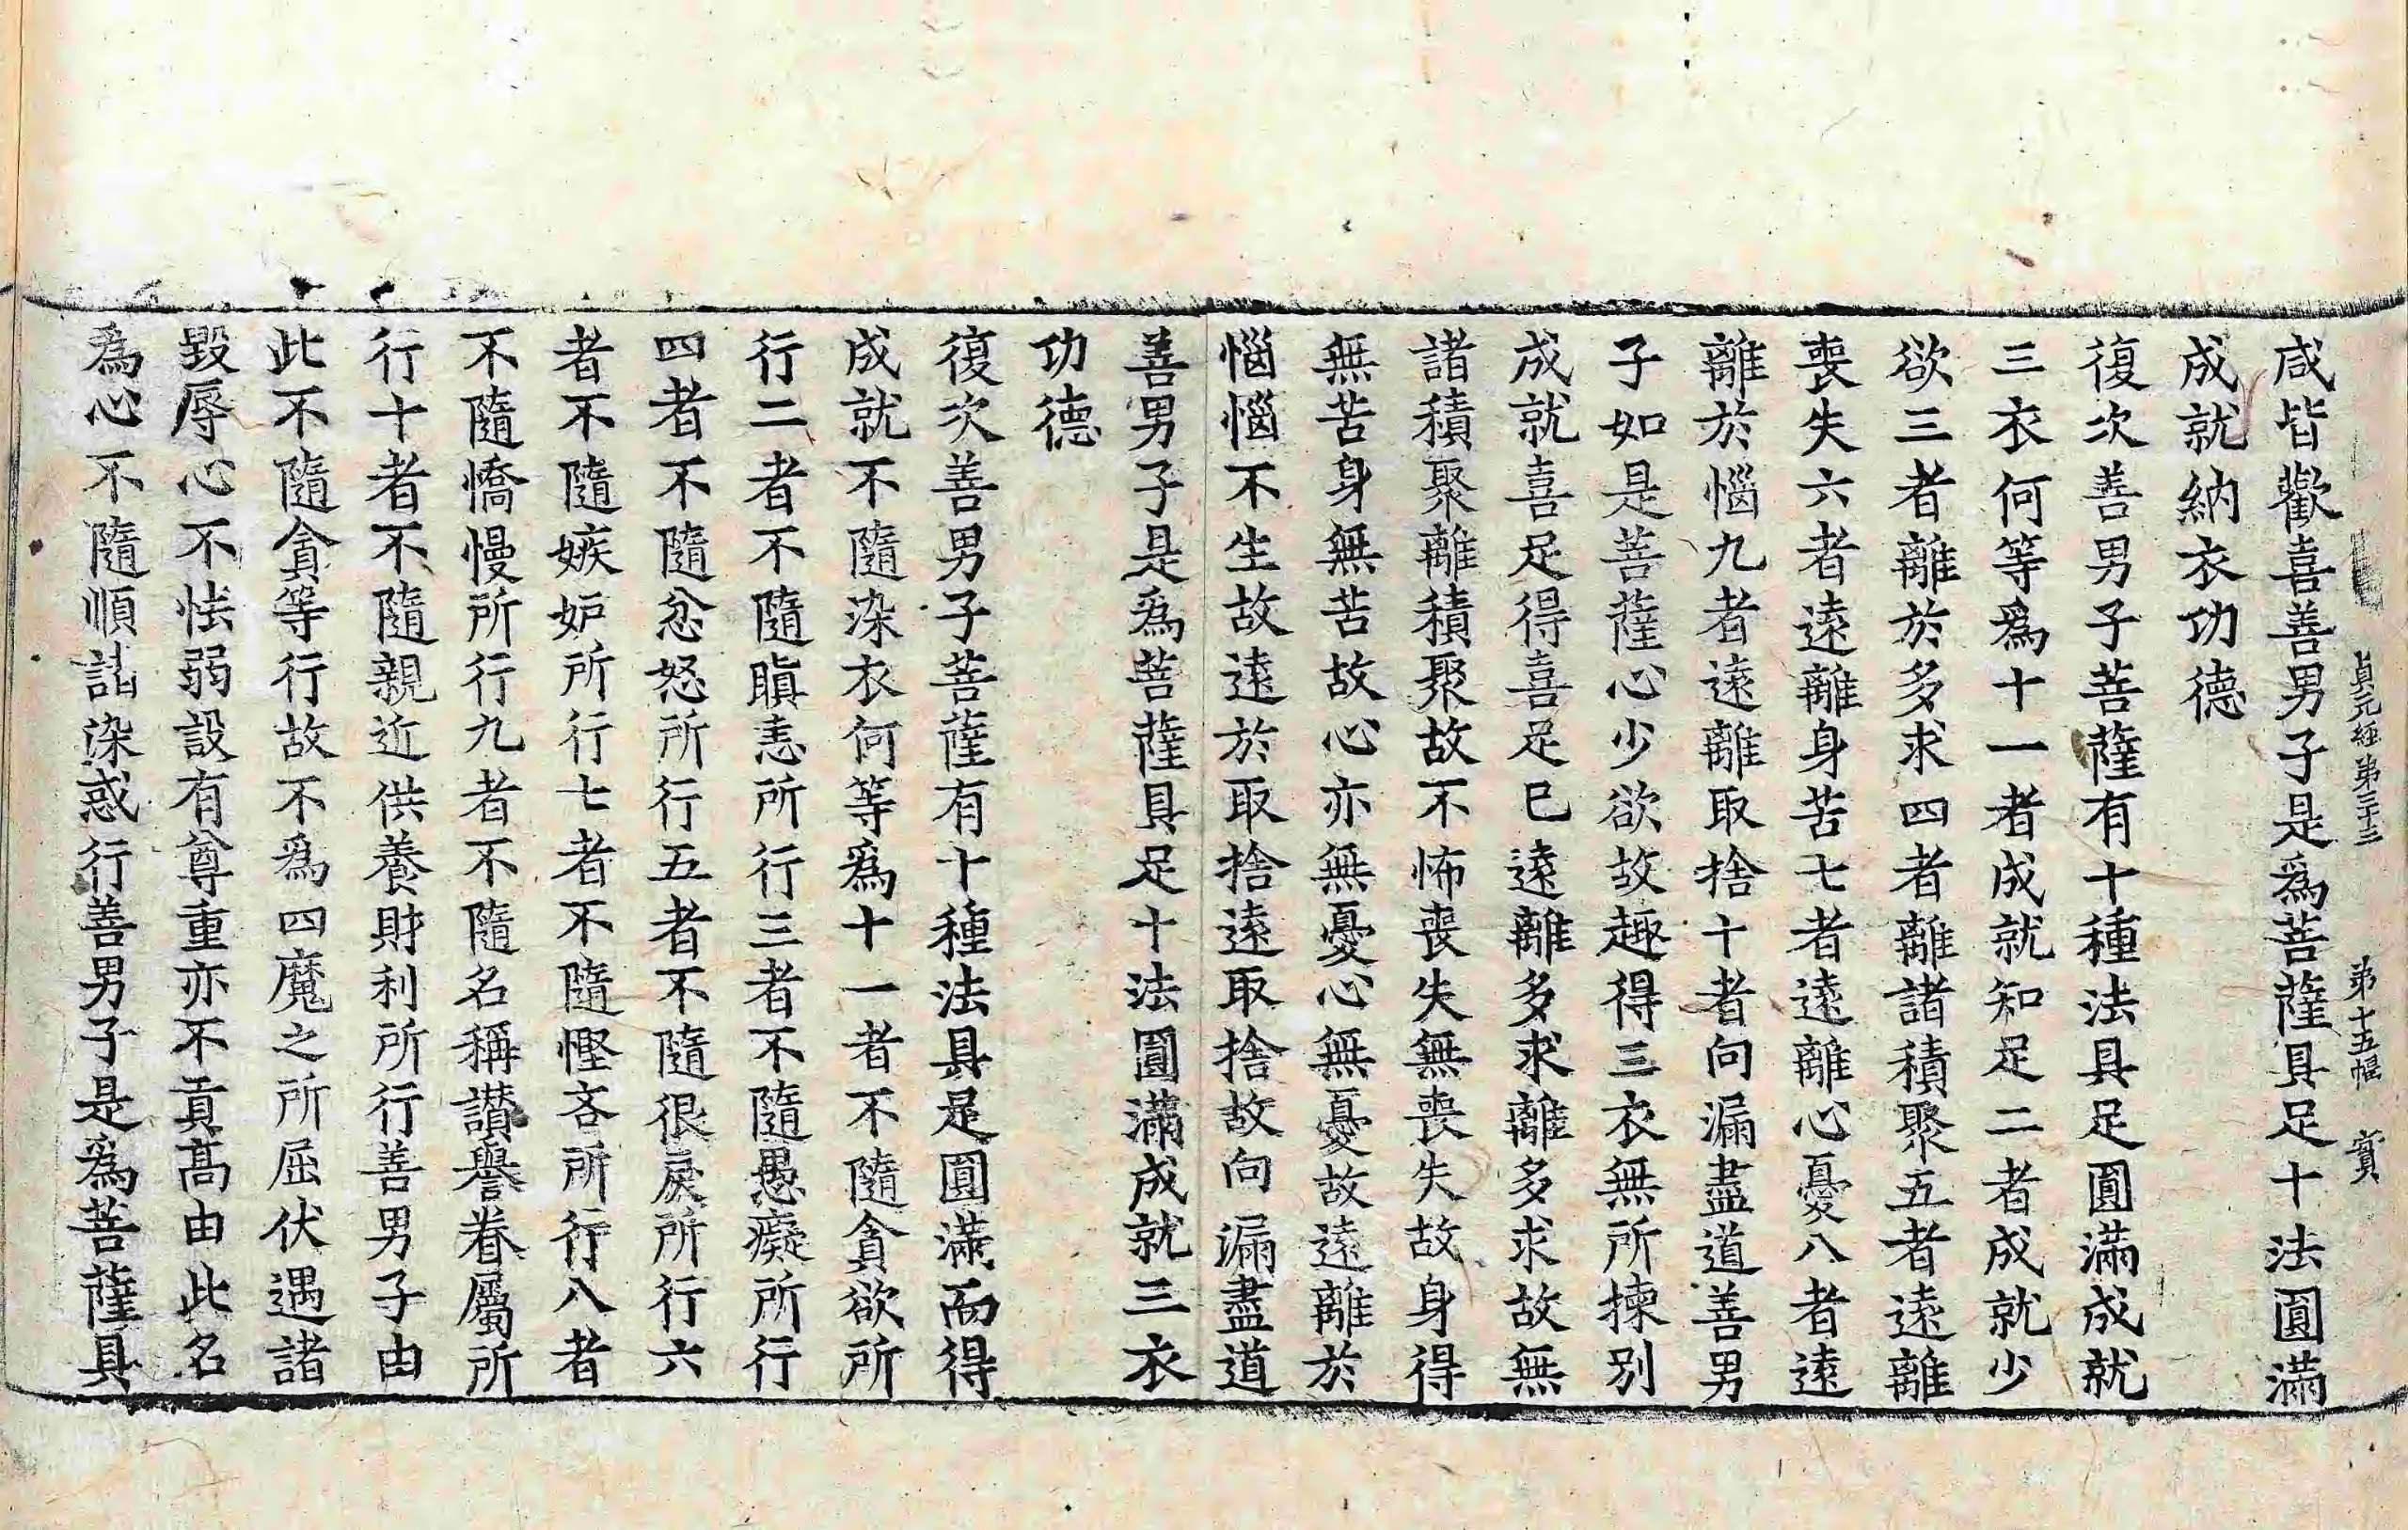 貞元經第三十三 第十五幅 實
咸皆歡喜善男子是爲菩薩具足十法圓滿
成就納衣功德
復次善男子菩薩有十種法具足圓滿成就
三衣何等爲十一者成就知足二者成就少
欲三者離於多求四者離諸積聚五者遠離
喪失六者遠離身苦七者遠離心憂八者遠
離於惱九者遠離取捨十者向漏盡道善男
子如是菩薩心少欲故趣得三衣無所揀別
成就喜足得喜足已遠離多求離多求故無
諸積聚離積聚故不怖喪失無喪失故身得
無苦身無苦故心亦無憂心無憂故遠離於
惱惱不生故遠於取捨遠取捨故向漏盡道
善男子是爲菩薩具足十法圓滿成就三衣
功德
復次善男子菩薩有十種法具足圓滿而得
成就不隨染衣何等爲十一者不隨貪欲所
行二者不隨瞋恚所行三者不隨愚癡所行
四者不隨忿怒所行五者不隨很戾所行六
者不隨嫉妒所行七者不隨慳吝所行八者
不隨憍慢所行九者不隨名稱讚譽眷屬所
行十者不隨親近供養財利所行善男子由
此不隨貪等行故不爲四魔之所屈伏遇諸
毀辱心不怯弱設有尊重亦不貢高由此名
爲心不隨順諸染惑行善男子是爲菩薩具